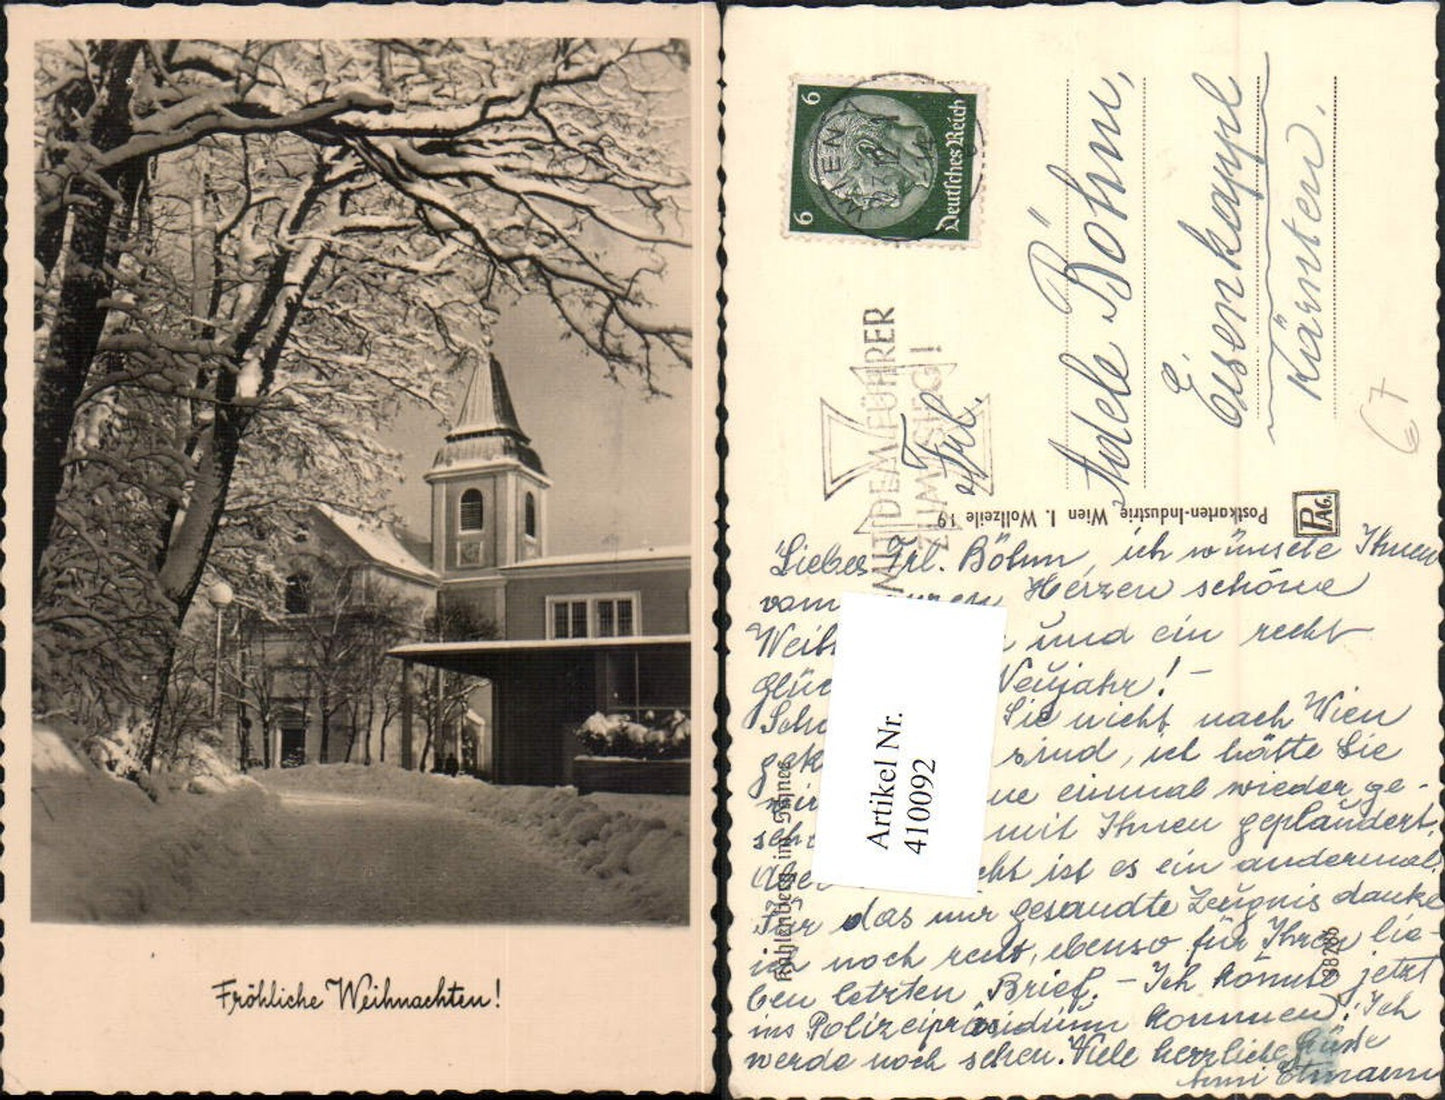 Fröhliche Weihnachten!
6
6
Deutsches Reich
WIEN
MIT DEM FÜHRER
ZUM SIEG!
Frl.
Adele Böhm,
Eisenkappl
Kärnten.
67
Postkarten-Industrie, Wien I. Wollzeile 19
PAG.
Kahlenberg im Schnee
Artikel Nr.
410092
Liebes Frl. Böhm, ich wünsche Ihnen
vom Herzen schöne
Weih und ein recht
glüc Neujahr! -
Scha Sie nicht nach Wien
gek sind, ich hätte Sie
wir ne einmal wieder ge-
seh mit Ihnen geplaudert.
Aber cht ist es ein andermal.
Für das mir gesandte Zeugnis danke
ich noch recht, ebenso für Ihren lie-
ben letzten Brief. - Ich könnte jetzt
ins Polizeipräsidium kommen. Ich
werde noch sehen. Viele herzliche Grüße